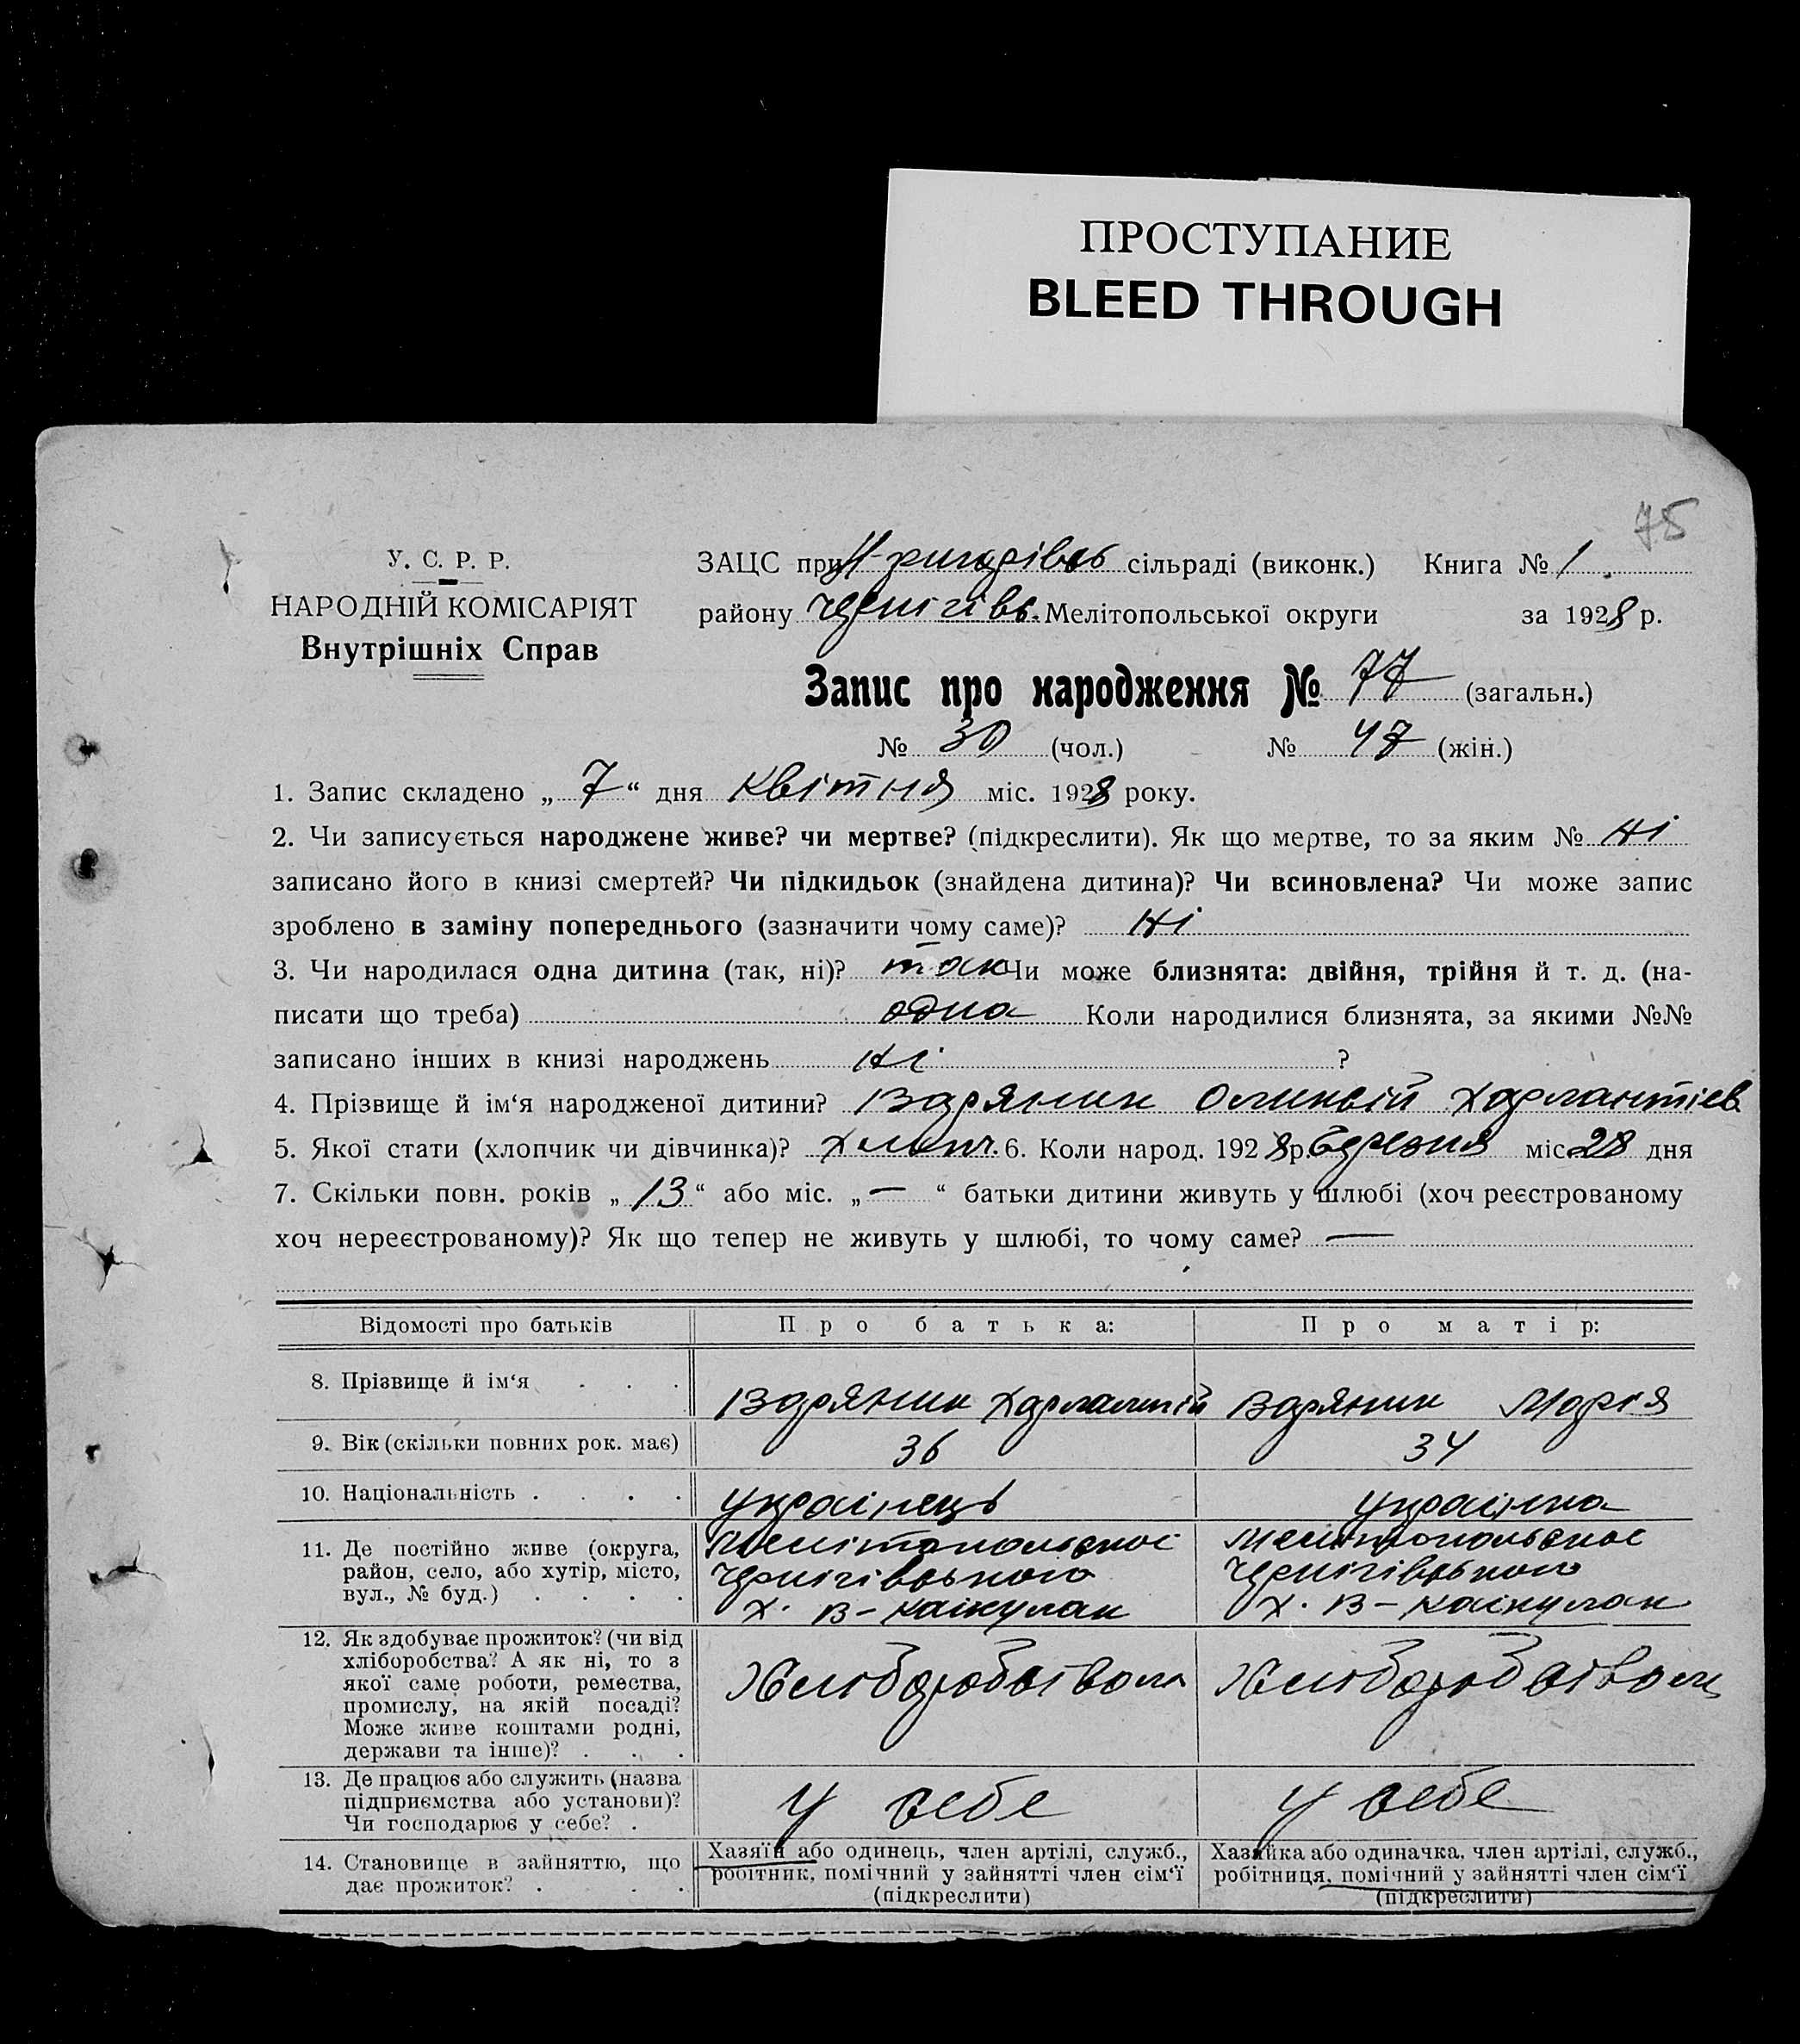 ПРОСТУПАНИЕ
BLEED THROUGH
75
У. С. Р. Р.
НАРОДНІЙ КОМІСАРІЯТ
Внутрішніх Справ
ЗАЦС при сільраді (виконк.) Книга № 1
району Чернігівс. Мелітопольської округи за 1928 р.
Запис про народження № 77 (загальн.)
№ 30 (чол.) № 47 (жін.)
1. Запис складено „ 7 “ дня квітня міс. 1928 року.
2. Чи записується народжене живе? чи мертве? (підкреслити). Як що мертве, то за яким № ні
записано його в книзі смертей? Чи підкидьок (знайдена дитина)? Чи всиновлена? Чи може запис
зроблено в заміну попереднього (зазначити чому саме)? ні
3. Чи народилася одна дитина (так, ні)? так Чи може близнята: двійня, трійня й т. д. (на-
писати що треба) одна Коли народилися близнята, за якими №№
записано інших в книзі народжень ні ?
4. Прізвище й ім‘я народженої дитини? Варяник Олексій Харлантіев
5. Якої стати (хлопчик чи дівчинка)? хлопч. 6. Коли народ. 1928 р. березня міс 28 дня
7. Скільки повн. років „ 13 “ або міс. „ — “ батьки дитини живуть у шлюбі (хоч реєстрованому
хоч нереєстрованому)? Як що тепер не живуть у шлюбі, то чому саме? —
Відомості про батьків Про батька: Про матір:
8. Прізвище й ім‘я . . . Варяник Харлантій Варяник Марія
9. Вік (скільки повних рок. має) 36 34
10. Національність . . . . українець українка
11. Де постійно живе (округа, район, село, або хутір, місто, вул., № буд.) . . . .
Мелітопольскоі
Чернігівського
х. В-каінкулак
Мелітопольскоі
Чернігівського
х. В-каінкулак
12. Як здобуває прожиток? (чи від
хліборобства? А як ні, то з
якої саме роботи, ремества,
промислу, на якій посаді?
Може живе коштами родні,
держави та інше)? . . .
Хліборобством Хліборобством
13. Де працює або служить (назва
підприємства або установи)?
Чи господарює у себе? .
у себе у себе
14. Становище в зайняттю, що
дає прожиток? . . .
Хазяїн або одинець, член артілі, служб.,
робітник, помічний у зайнятті член сім‘ї
(підкреслити)
Хазяйка або одиначка, член артілі, служб.,
робітниця, помічний у зайнятті член сім‘ї
(підкреслити)